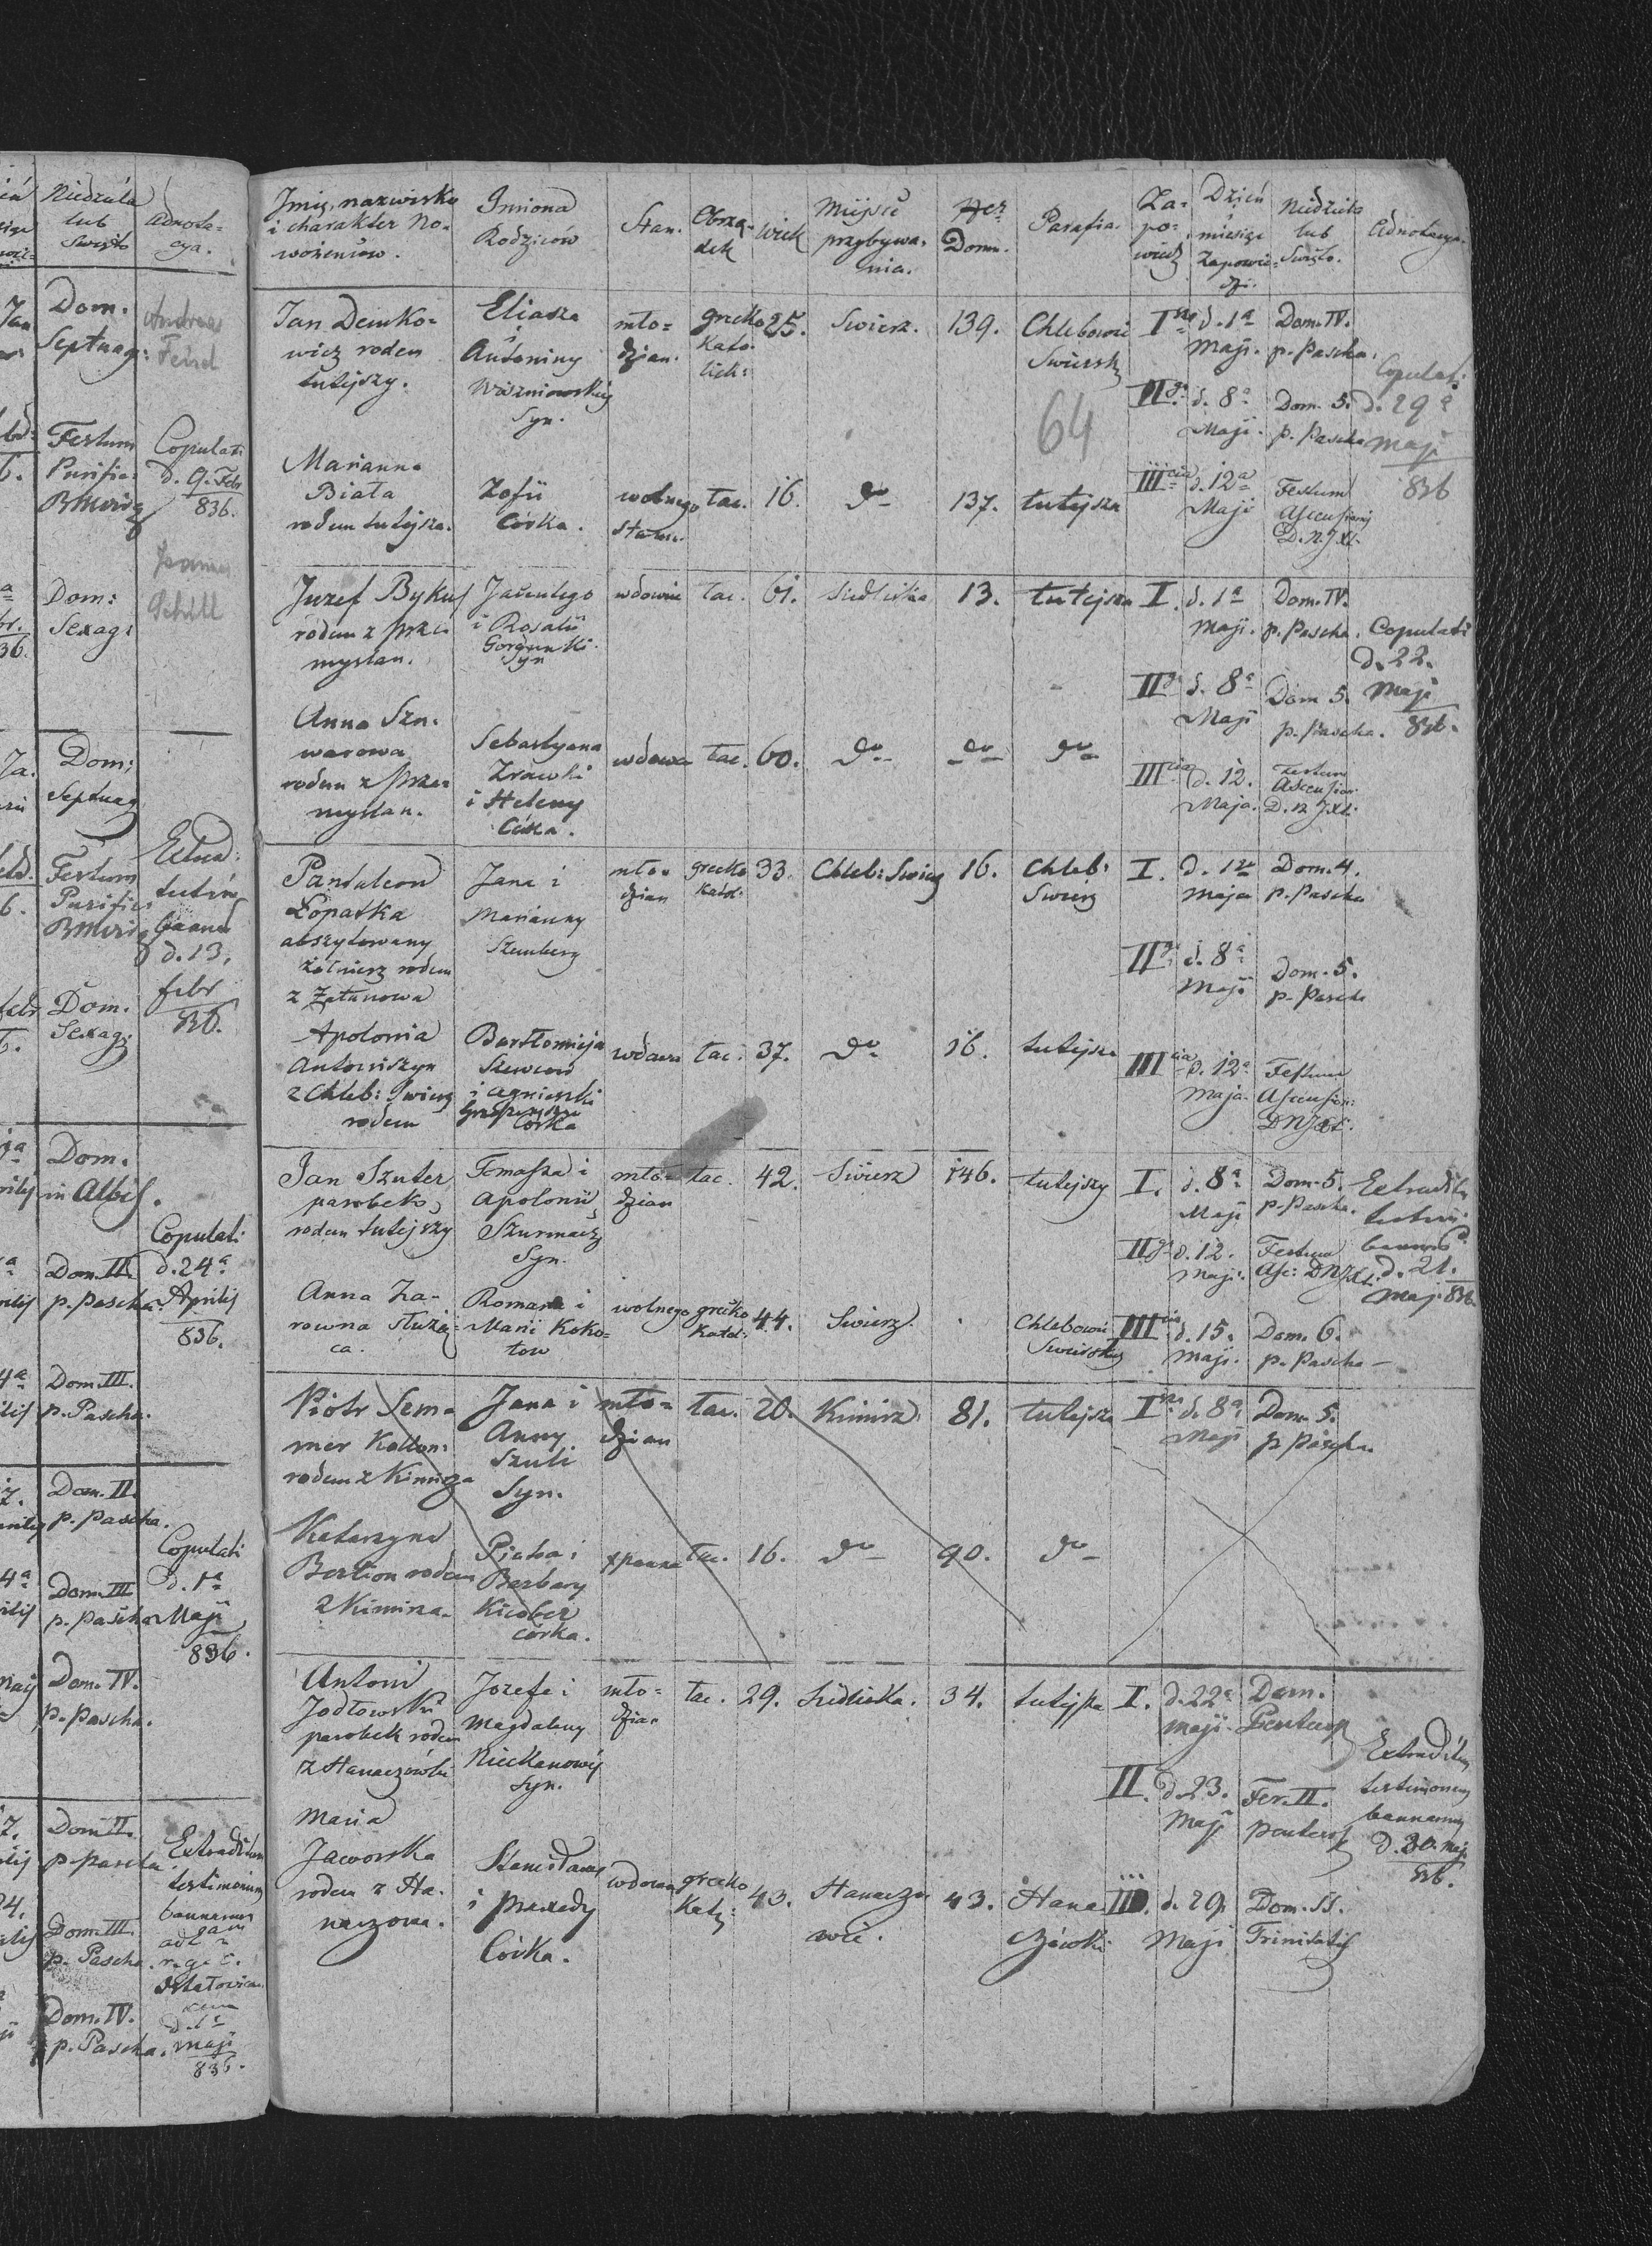 Niedziela
lub
Swięto
Adnota=
cya.
Dom:
Septuag:
Andreas
Feind
Festum
Purific:
BMVirg
Copulati
d. 9. Febr
836.
Dom:
Sexag:
Schill
Dom:
Septuag
Festum
Purific:
BMVirg
d. 13.
febr
836.
Dom.
Sexag:
Dom.
in Albis.
Copulati
Dom. II.
d. 24ª
p. Pascha.
Aprilis
836.
Dom. III.
p. Pascha.
Dom. II.
p. Pascha.
Copulati
d. 1ª
Dom. III
p. Pascha
Maji
836.
Dom. IV.
p. Pascha.
Dom II.
p. Pascha
Extraditum
testimonium
bannorum
Dom. III.
p. Pascha.
Dom. IV.
p. Pascha.
d. 1ª
maji
836.
Imię, nazwisko
i charakter No=
wożeńców.
Imiona
Rodziców
Stan.
Obrzą=
dek
Wiek
Miejsce
przybywa=
nia.
Ner
Domu.
Parafia.
Za=
po=
wiedź
Dzień
miesiąc
Zapowie=
dzi.
Niedziela
lub
Swięto.
Adnotacya.
Jan Demko=
wicz rodem
tutejszy.
Eliasza
i
Antoniny
Wiśniowskiej
Syn.
mło=
dzian.
grecko
Kato=
lick:
25.
Swirz.
139.
Chlebowic
Swirsk
I
d. 1ª
Maji.
Dom. IV.
p. Pascha.
II
d. 8ª
Maji.
Dom. 5.
p. Pascha
Copulati
d. 29ª
maji
836
64
Marianna
Biała
rodem tutejsza.
Zofii
Córka.
wolnego
stanu.
łac.
16.
do
137.
tutejsza
III
d. 12ª
Maji
Festum
Ascensionis
D. N. J Xti.
Juzef Bykus
rodem z Prze=
myślan.
Jacentego
i Rosalii
Syn
wdowiec
łac.
61.
Siedliska
13.
tutejsza
I.
d. 1ª
Maji.
Dom. IV.
p. Pascha.
Copulati
d. 22.
Maji
836.
II
d. 8ª
Maji
Dom 5.
p. Pascha.
Anna Szn=
warowa
rodem z Prze=
myślan.
Sebastyana
Zrawki
i Heleny
Córka.
wdowa
łac.
60.
do
do
do
III
d. 12.
Maja.
Festum
Ascension:
D. N JXti.
Pantaleon
Łopatka
abszytowany
żołnierz rodem
z Załanowa
Jana i
Marianny
Szemberg
mło=
dzian
grecko
katol:
33.
Chleb: Swirz
16.
Chleb:
Swirz
I.
d. 1ª
Maja
Dom. 4.
p. Pascha
II
d. 8ª
Maji
Dom. 5.
p. Pascha
Apolonia
Antoniszyn
z Chleb: Swirz
rodem
Bartłomieja
Szewców
i Agnieszki
córka
wdowa
łac.
37.
do
16.
tutejsza
III
d. 12ª
Maja.
Festum
Ascension:
DNJXt.
Jan Szuter
parobek,
rodem tutejszy
Tomasza i
Apolonii
Szurmacz
Syn.
mło=
dzian
łac.
42.
Swirz
146.
tutejszy
I.
d. 8ª
Maji
Dom. 5.
p. Pascha.
Extradit:
testim:
d. 21.
maj 836.
II
d. 12.
Maji.
Festum
Asc: DNJXt.
Anna Za=
rowna służą=
ca.
Romana i
Marii Koko=
tow
wolnego
grecko
Katol:
44.
Swirz.
Chlebowic
Swirskich
III
d. 15.
Maji.
Dom. 6.
p. Pascha
Piotr Sem=
mer Kollon:
rodem z Kimirza
Jana i
Anny
Szuli
Syn.
mło=
dzian
łac.
20.
Kimirz.
81.
tutejsza
I
d. 8ª
Maji
Dom. 5.
p Pascha.
Katarzyna
rodem
z Kimirza.
Barbary
córka.
panna
łac.
16.
do
90.
do
Antoni
Jodłowski
parobek rodem
z Hanaczówki
Jozefa i
Magdaleny
Syn.
mło=
dzian
łac.
29.
Siedliska.
34.
tutejsza
I.
d. 22ª
maji.
Dom.
Pentecos
II.
d. 23.
Maji
Fer. II.
Pentecos
Extraditum
testimonium
bannorum
d. 30. maj
836.
Maria
Jaworska
rodem z Ha=
naczowa.
Stanisława
i Praxedy
Córka.
wdowa
grecko
Kat:
43.
Hanaczo
wie.
43.
Hana
czówki
III.
d. 29.
Maji
Dom. SS.
Trinitatis